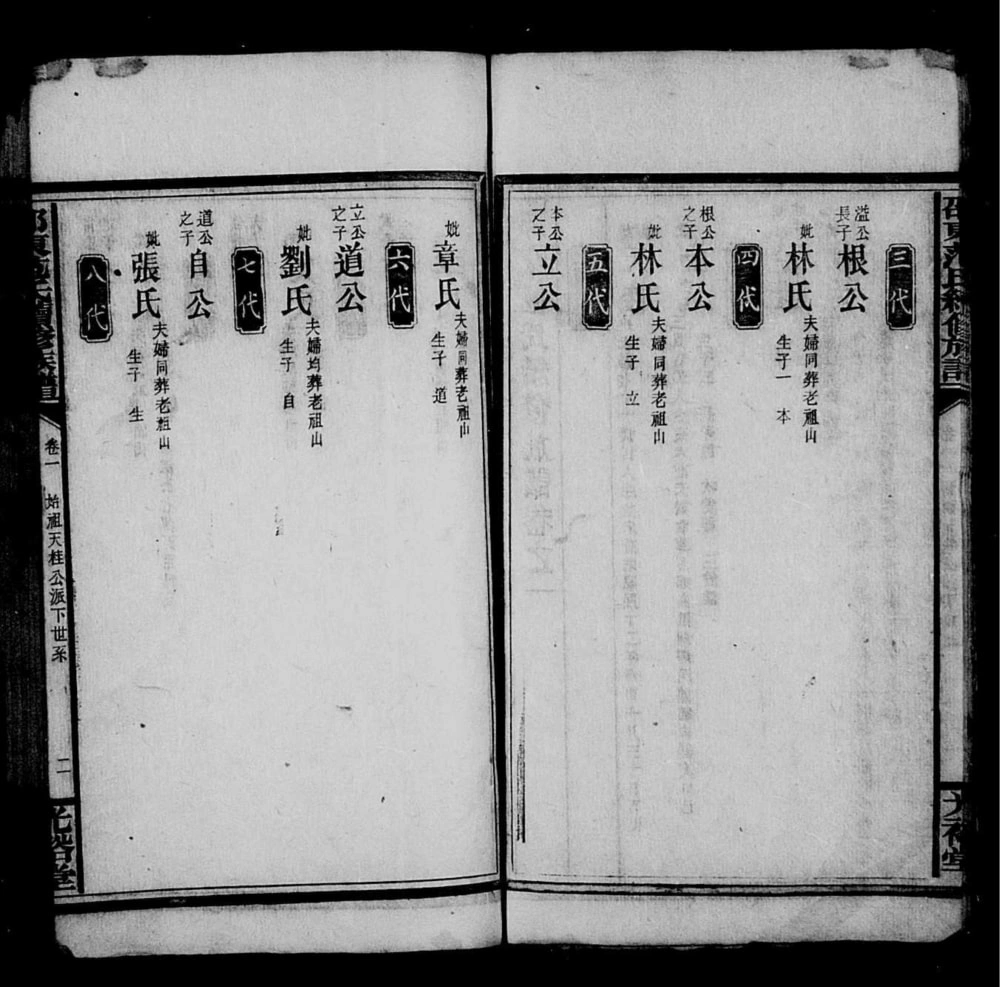 三代
溢公長子 根公
妣 林氏 夫婦同葬老祖山
生子一 本
四代
根公之子 本公
妣 林氏 夫婦同葬老祖山
生子 立
五代
本公之子 立公
妣 章氏 夫婦同葬老祖山
生子 道
六代
立公之子 道公
妣 劉氏 夫婦均葬老祖山
生子 自
七代
道公之子 自公
妣 張氏 夫婦同葬老祖山
生子 生
八代
卷一 始祖天桂公派下世系 二